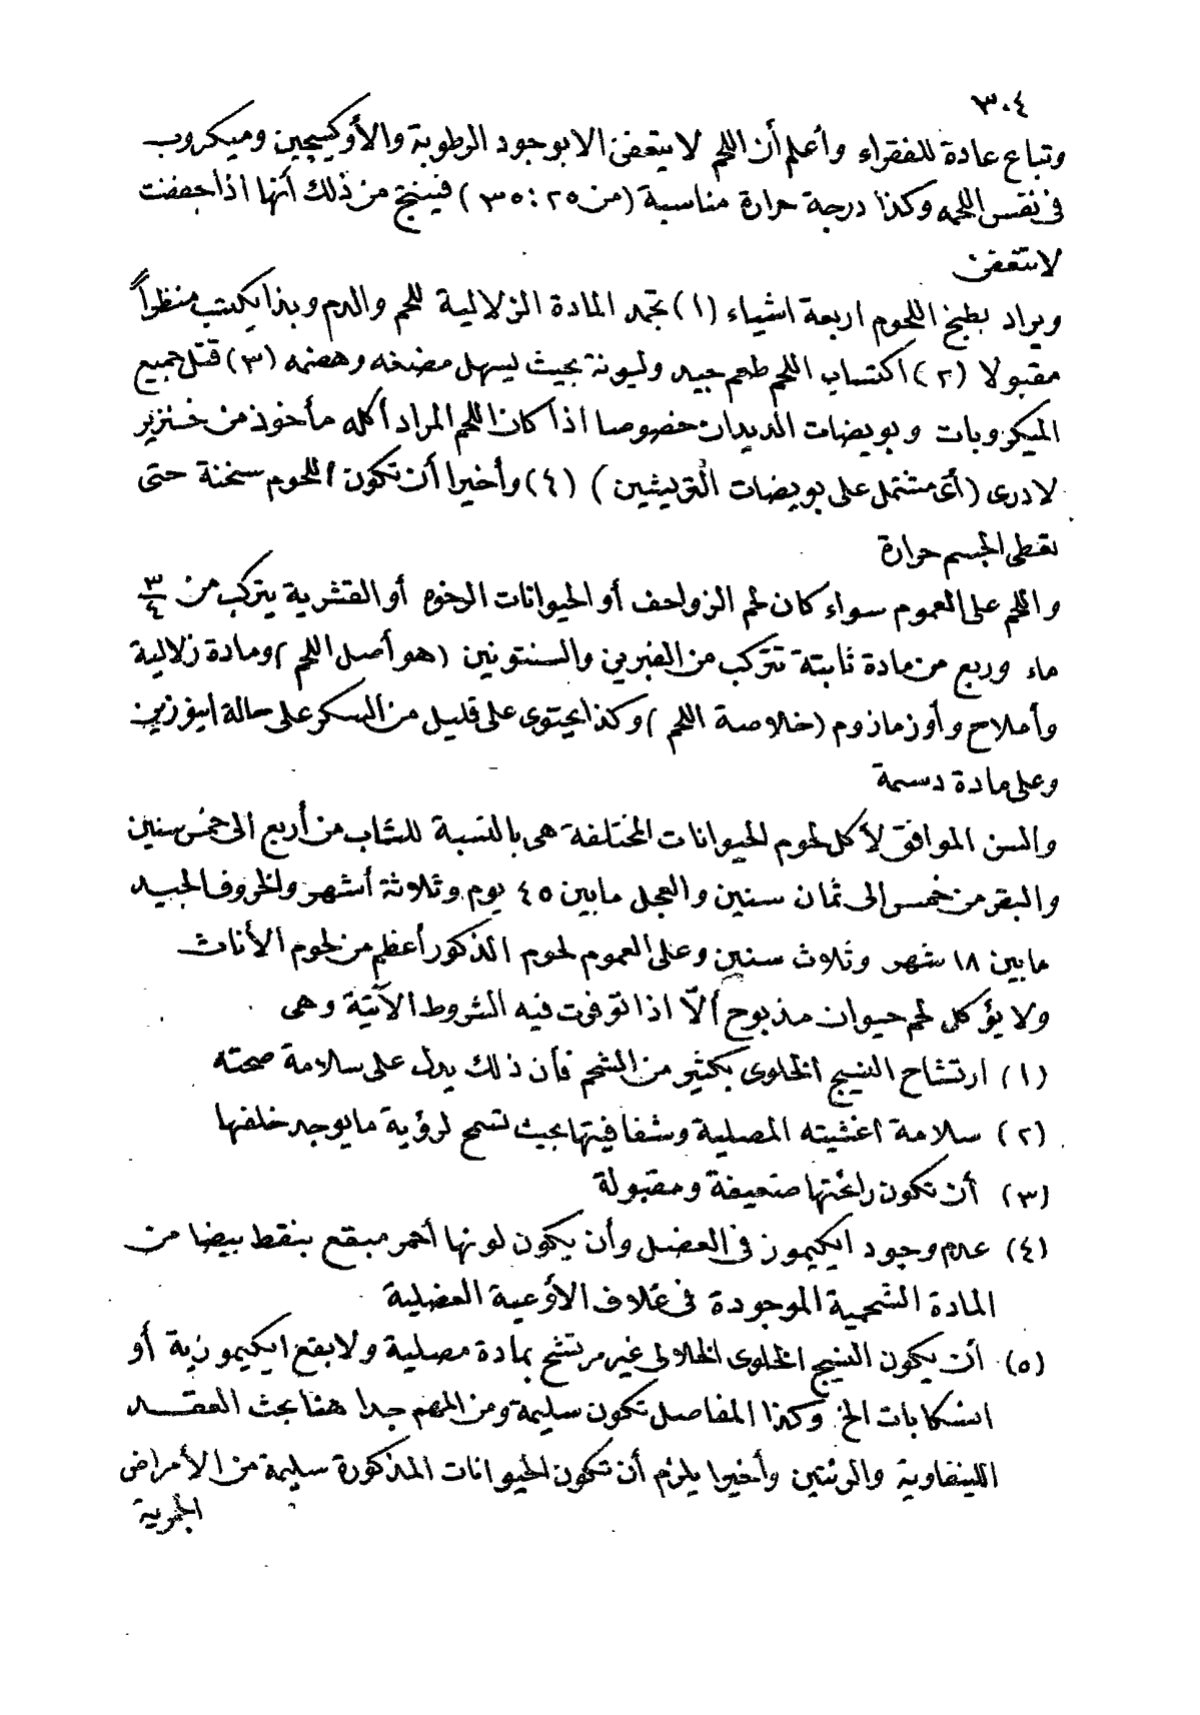 ٣٠٤
وتباع عادة للفقراء وأعلم أن اللحم لا يتعفن الا بوجود الرطوبة والأوكسيجين وميكروب
فى نفس اللحمه وكذا درجة حرارة مناسبة (من ٢٥:٣٥) فينتج من ذلك أنها اذا جففت
لا تتعفن
ويراد بطبخ اللحوم اربعة اشياء (١) تجمد المادة الزلالية للحم والدم وبذا يكتسب منظراً
مقبولا (٢) اكتساب اللحم طعم جيد وليونة بحيث يسهل مضغه وهضمه (٣) قتل جميع
الميكروبات وبويضات الديدان خصوصا اذا كان اللحم المراد أكله مأخوذ من خنزير
لادرى (أى مشتمل على بويضات التريشين) (٤) وأخيرا أن تكون اللحوم سخنة حتى
تعطى الجسم حرارة
واللحم على العموم سواء كان لحم الزواحف أو الحيوانات الرخوه أو القشرية يتركب من ٣/٤
ماء وربع من مادة ثابتة تتركب من الفبرين والسنتونين (هو أصل اللحم) ومادة زلالية
وأملاح وأوزمازوم (خلاصة اللحم) وكذا يحتوى على قليل من السكر على حالة اينوزين
وعلى مادة دسمة
والسن الموافق لأكل لحوم الحيوانات المختلفة هى بالنسبة للشاب من أربع الى خمس سنين
والبقر من خمس الى ثمان سنين والعجل مابين ٤٥ يوم وثلاثة أشهر والخروف الجيد
مابين ١٨ شهر وثلاث سنين وعلى العموم لحوم الذكور أعظم من لحوم الأناث
ولا يؤكل لحم حيوان مذبوح ألّا اذا توفرت فيه الشروط الآتية وهى
(١) ارتشاح النسيج الخلوى بكثير من الشحم فأن ذلك يدل على سلامة صحته
(٢) سلامة اغشيته المصلية وشفافيتها بحيث تسمح لرؤية مايوجد خلفها
(٣) أن تكون رائحتها ضعيفة ومقبولة
(٤) عدم وجود ايكيموز فى العضل وأن يكون لونها أحمر مبقع بنقط بيضا من
المادة الشحمية الموجودة فى غلاف الأوعية العضلية
(٥) أن يكون النسيج الخلوى الخلالى غير مرتشح بمادة مصلية ولا بقع ايكيموزية أو
انسكابات الخ وكذا المفاصل تكون سليمة ومن المهم جدا هنا بحث العقد
اللينفاوية والرئتين وأخيرا يلزم أن تكون الحيوانات المذكورة سليمة من الأمراض
الجمرية